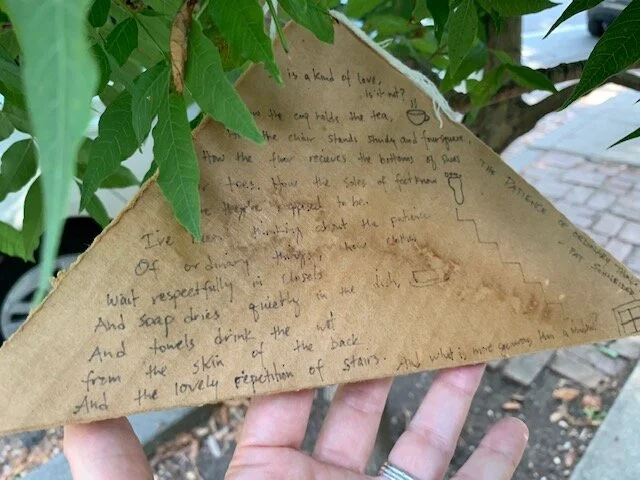 is a kind of love,
Is it not?
the cup holds the tea,
the chair stands sturdy and foursquare,
How the floor receives the bottoms of shoes
toes. How the soles of feet know
they're supposed to be.
I've been thinking about the patience
Of ordinary things, how clothes
Wait respectfully in closets
And soap dries quietly in the dish,
And towels drink the wet
from the skin of the back
And the lovely repetition of stairs. And what is more generous than a window?
- THE PATIENCE OF ORDINARY
- PAT SCHNEIDER